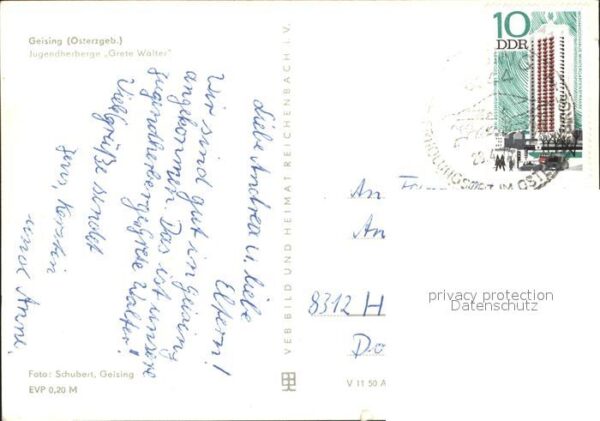 Geising (Osterzgeb.)
Jugendherberge „Grete Walter"
Liebe Andrea u. liebe
Eltern!
Wir sind gut in Geising
angekommen. Das ist unsere
Jugendherberge „Grete Walter"!
Viele Grüße sendet
Jens, Kerstin
und Anne.
Foto: Schubert, Geising
EVP 0,20 M
VEB BILD UND HEIMAT REICHENBACH I. V.
V 11 50 A
10
DDR
An
An
8312 H
Do
privacy protection
Datenschutz